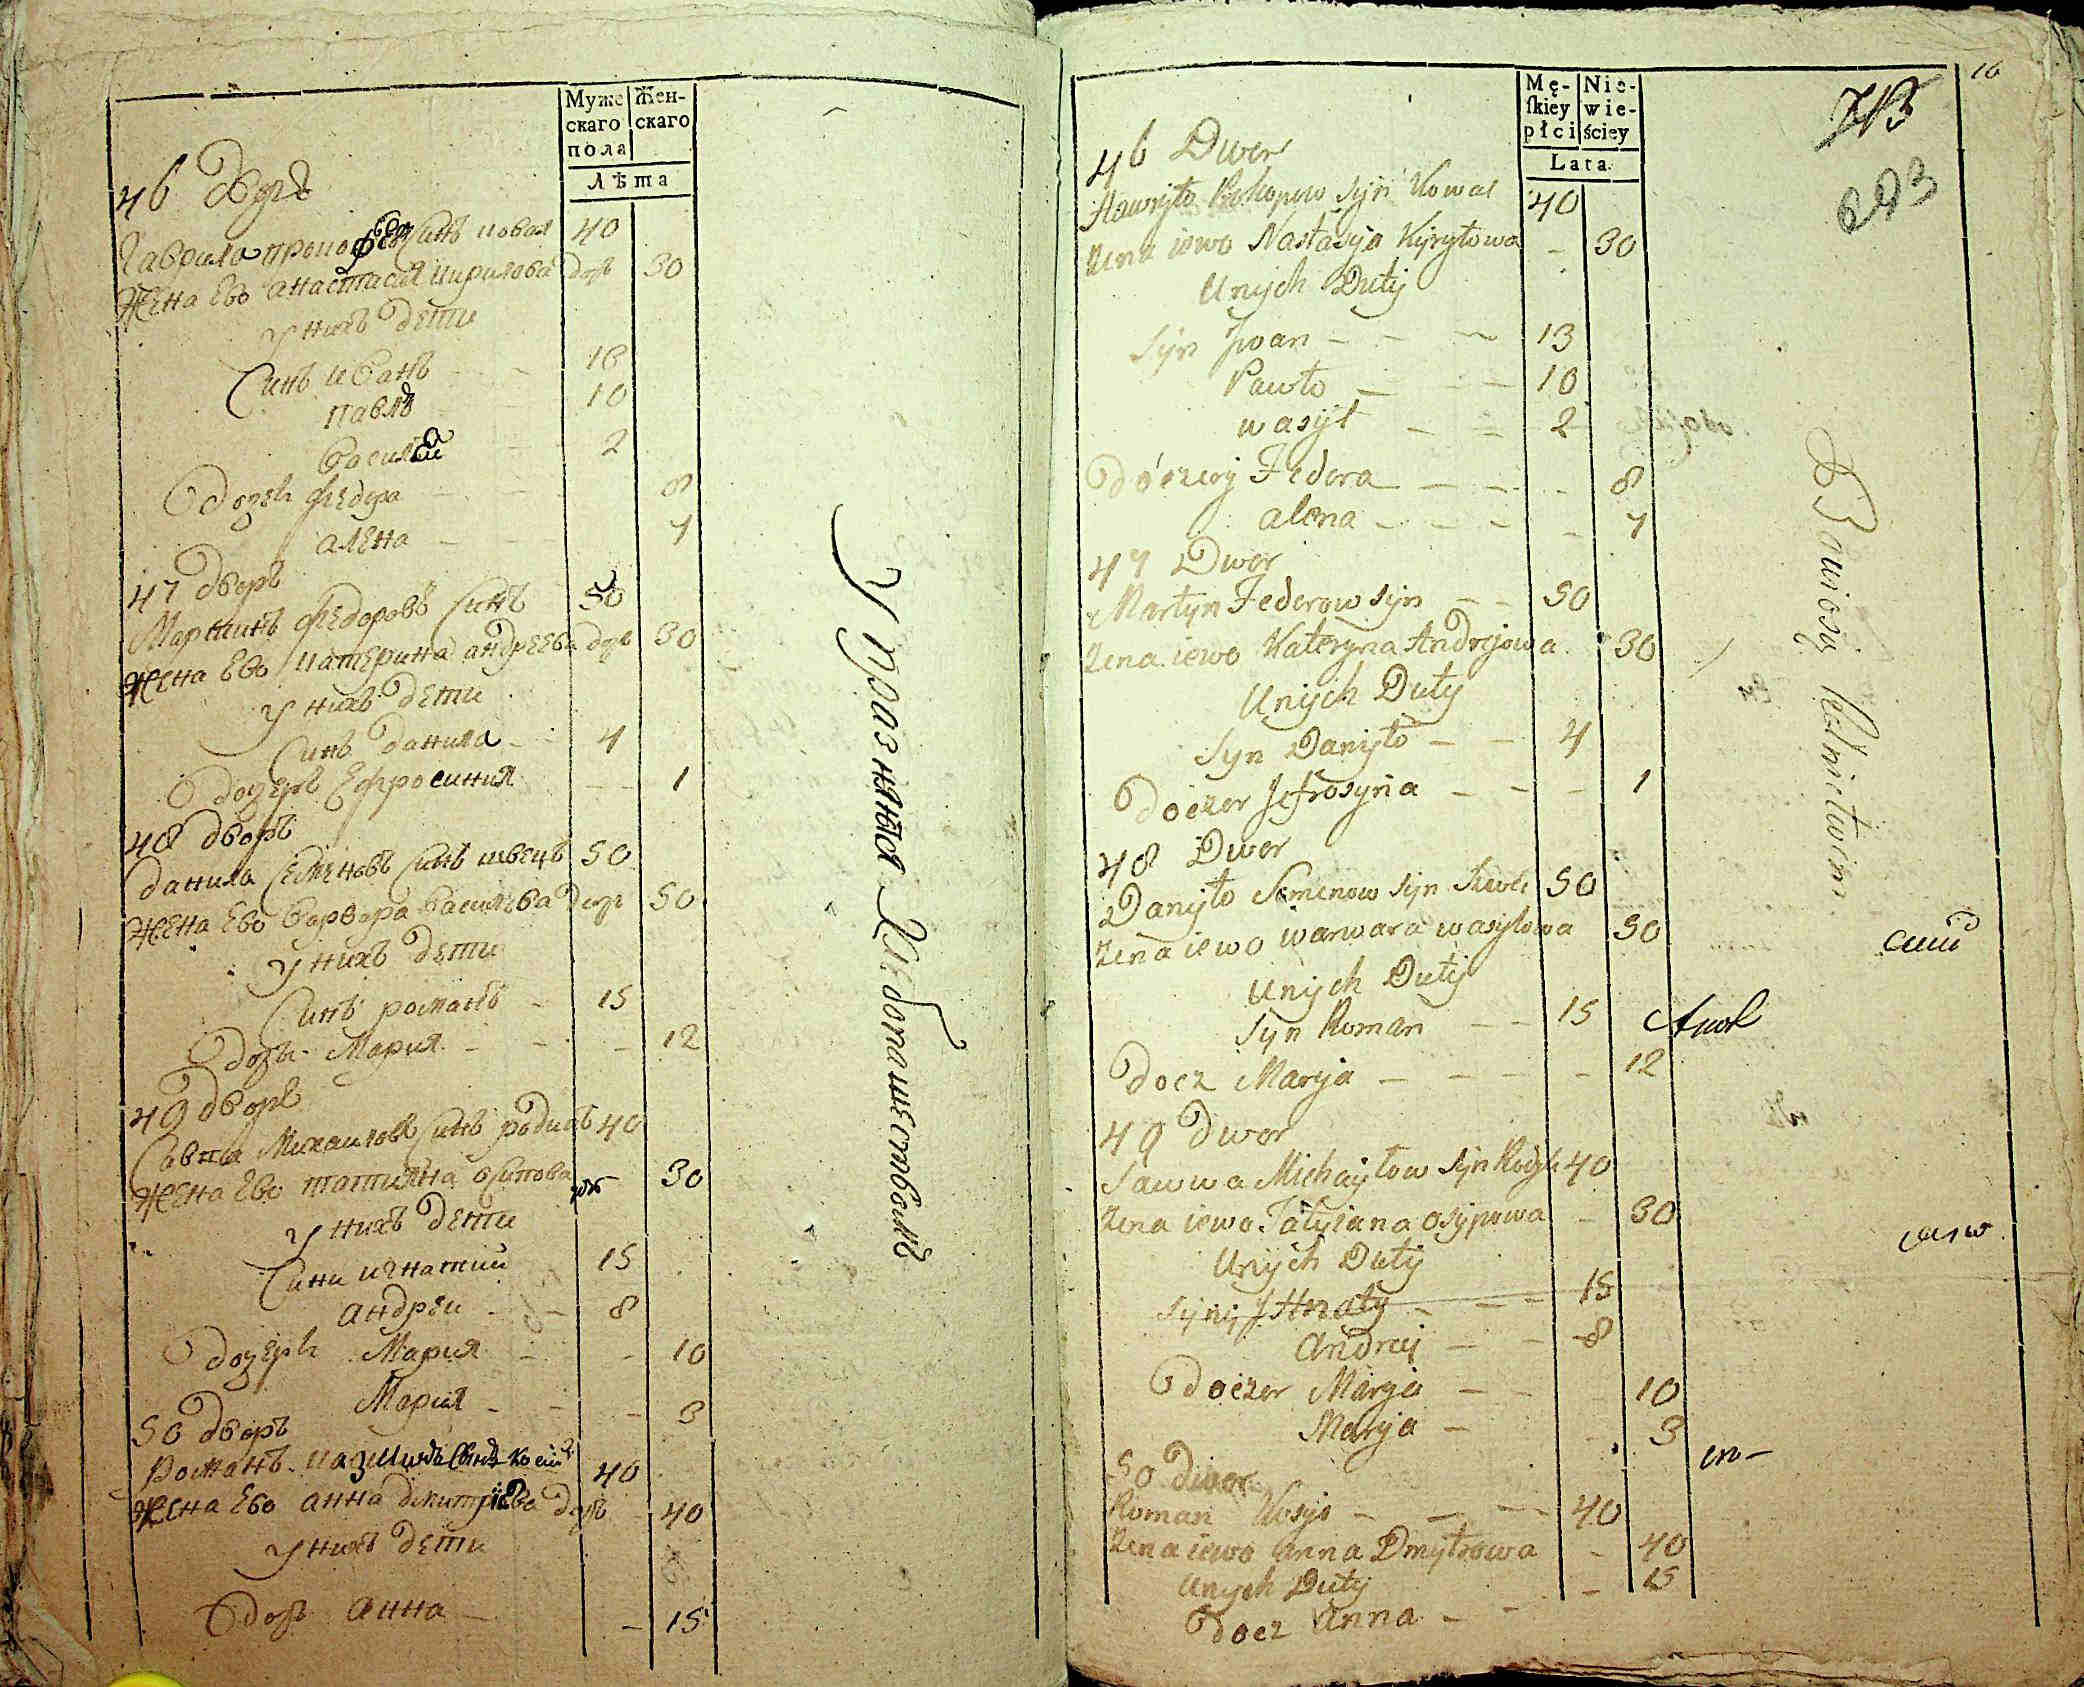 Муже Жен-
скаго скаго
пола
Лѣта
46 дворъ
Гаврила Синъ ковал 40
Жена Ево анастасия кирилова дочь 30
У нихъ дети
Синъ иванъ 13
павлъ 10
василий 2
дочеь федора 8
алена 7
47 дворъ
Мартинъ федоровъ Синъ 50
Жена Ево катерина андреева дочь 30
У нихъ дети
Синъ данила 4
дочерь Ефросиния 1
48 дворъ
данила Семеновъ Синъ швецъ 50
Жена Ево варвара василева дочь 50
У нихъ дети
Синъ романъ 15
дочь Мария 12
49 дворъ
Савка Михаиловъ Синъ родикъ 40
Жена Ево татияна осипова дочь 30
У нихъ дети
Сини игнатий 15
андреи 8
дочерь Мария 10
Мария 3
50 дворъ
Романъ 40
Жена Ево анна дмитриева дочь 40
У нихъ дети
дочь анна 15
Упражняются хлебопашествомъ
16
Mę- Nie-
skiey wie-
płci ściey
Lata
293
46 Dwor
Hawryło Prokopow syn Kowal 40
Żena iewo Nastasyja Kyryłowa 30
Unych Dity
Syn Jwan 13
Pawło 10
wasyl 2
doczery Fedora 8
alena 7
47 Dwor
Martyn Federow syn 50
Żena iewo Kateryna Andrejowa 30
Unych Dity
Syn Danyło 4
doczer Jefrosynia 1
48 Dwor
Danyło Semenow syn Szwec 50
Żena iewo warwara wasylowa 50
Unych Dity
Syn Roman 15
docz Marya 12
49 Dwor
Sawwa Michayłow syn Rodyk 40
Żena iewo Tatyiana osypowa 30
Unych Dity
Syny Jhnaty 15
Andrej 8
doczer Marya 10
Marya 3
50 Dwor
Roman Kosyj 40
Żena iewo anna Dmytrowa 40
Unych Dity 15
docz Anna
Bawiosię Rolnictwem